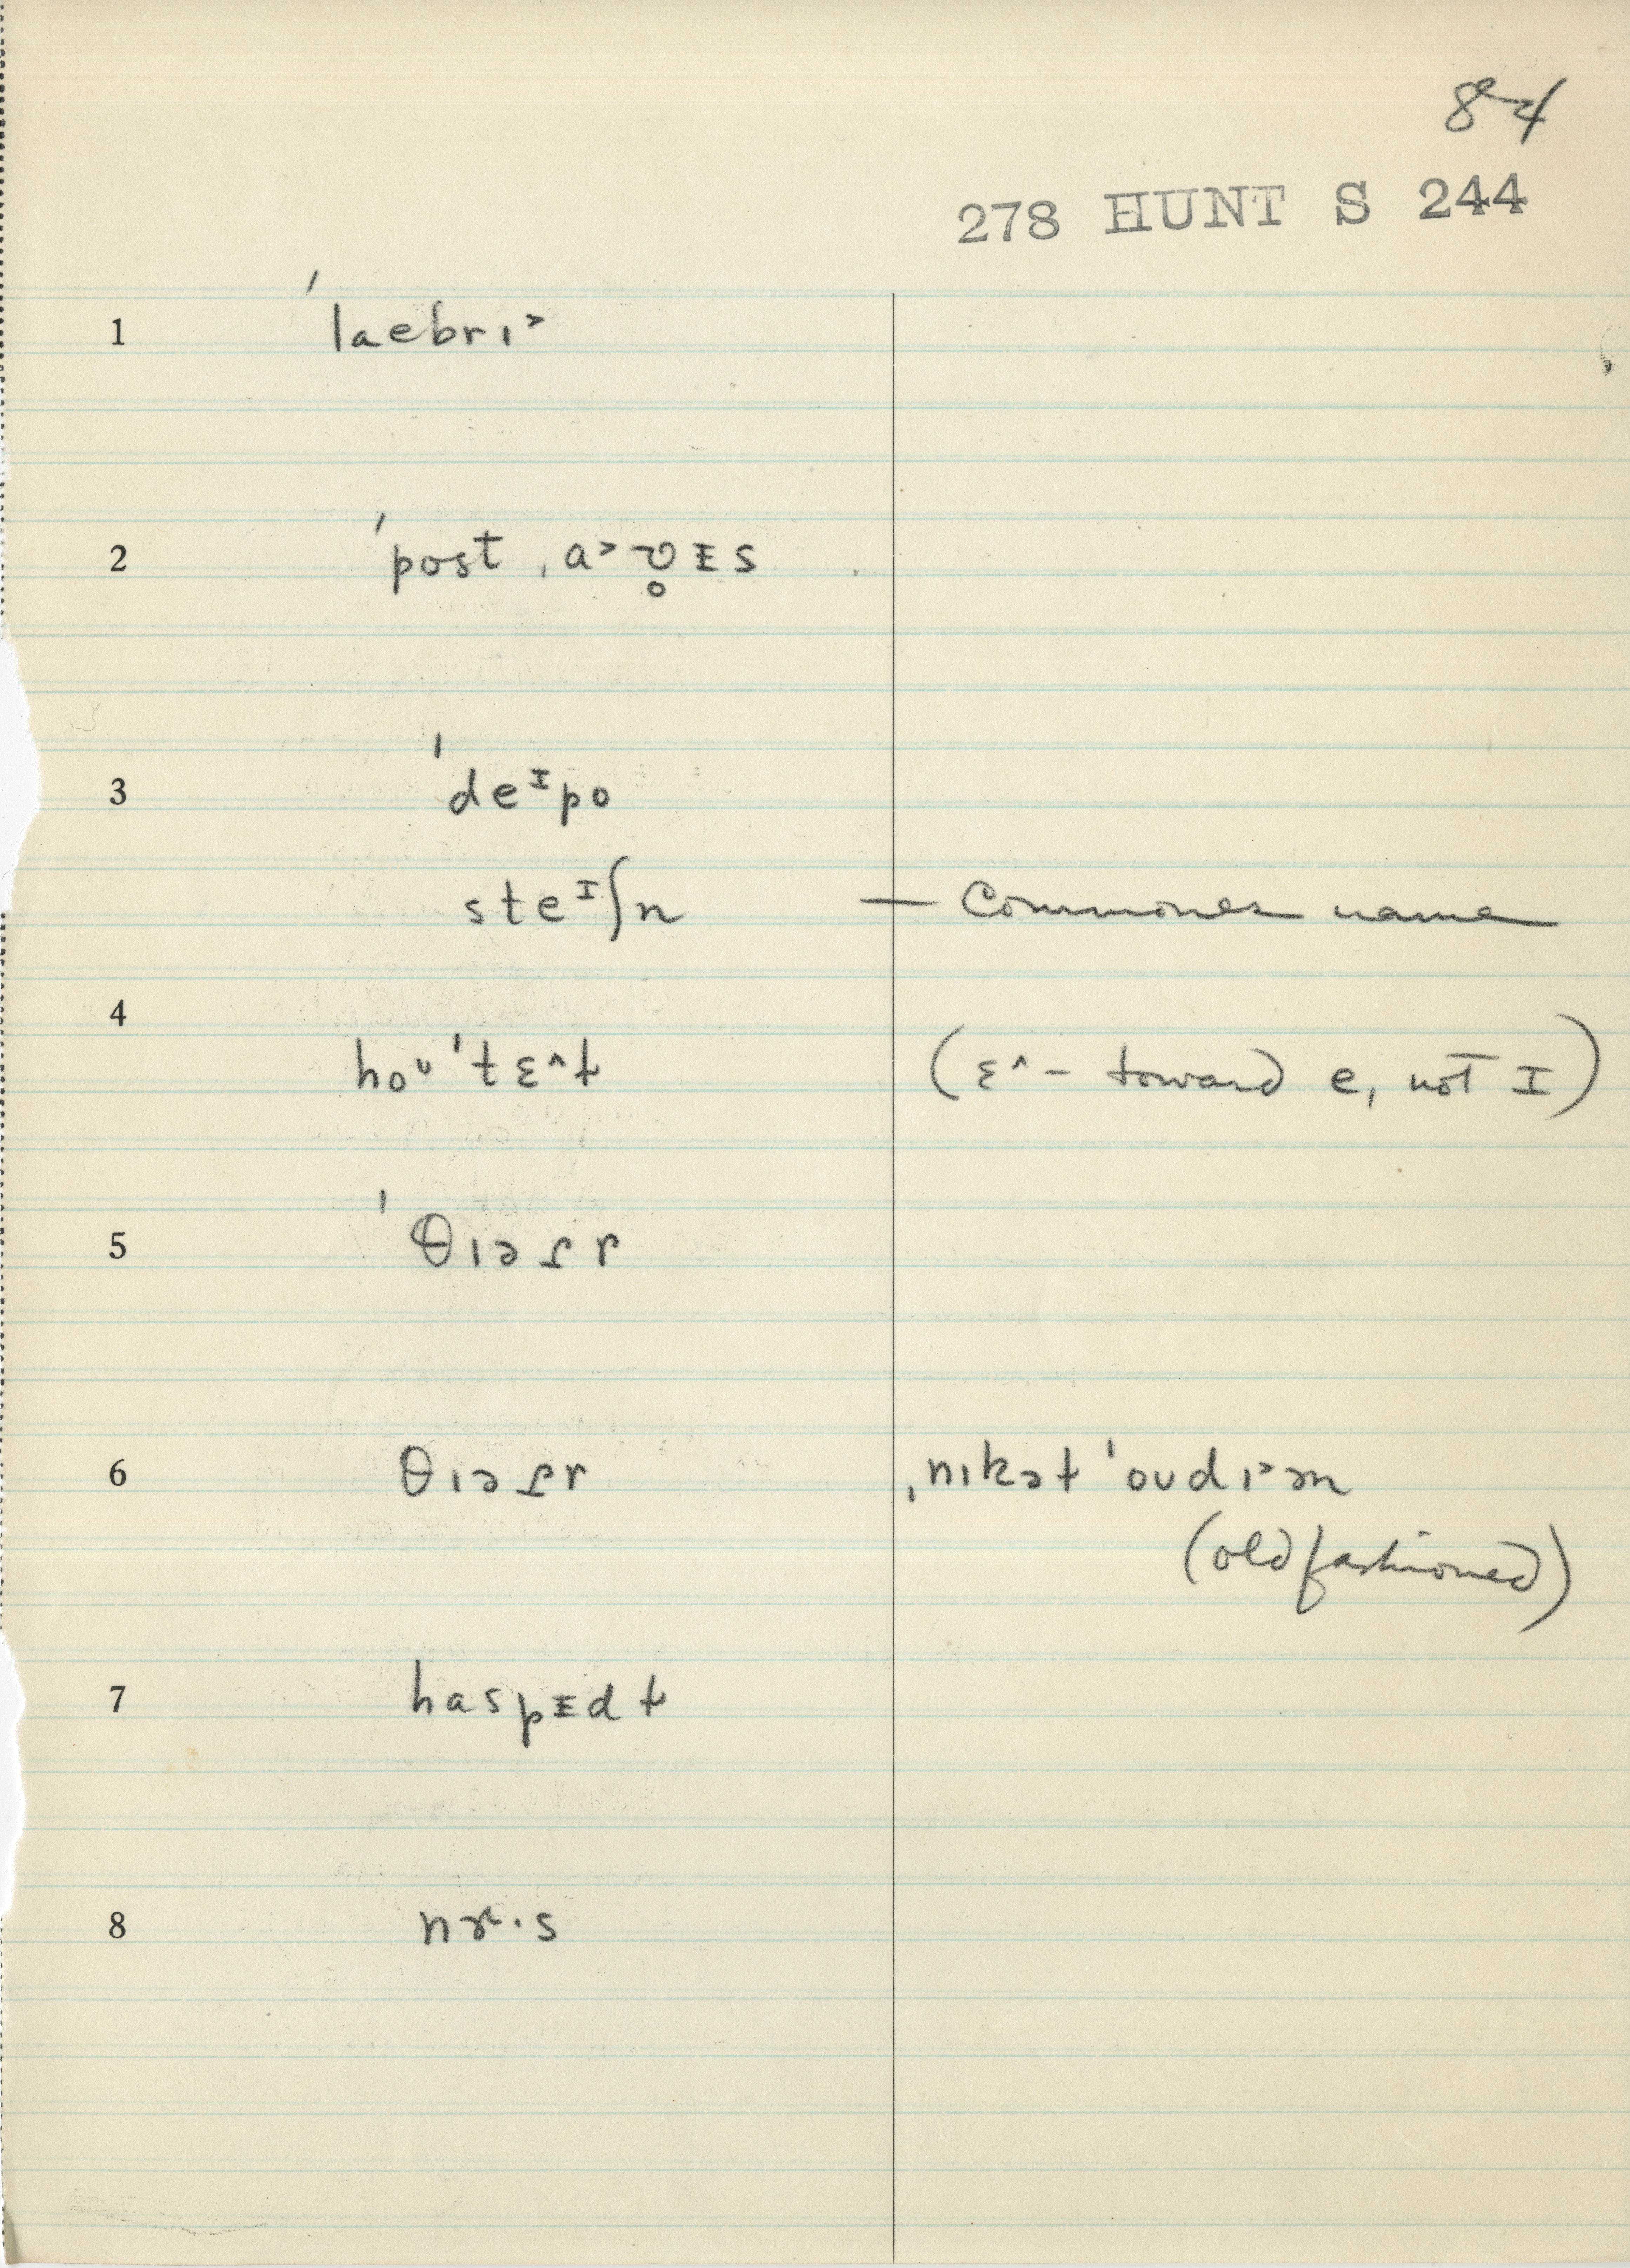 84
278 HUNT S 244
1 ˈlaebrɪ˃
2 ˈpost ˌa˃ʊ̥ᵻs
3 ˈdeᴵpo
steᴵʃn — Commones name
4
hoᶸˈtɛ^t (ɛ^ – toward e, not I)
5 ˈθɪəɾr
6 θɪəɾr ˌnɪkət ˈoudɪ˃əm
(old fashioned)
7 haspᵻdɫ
8 nɝ·s